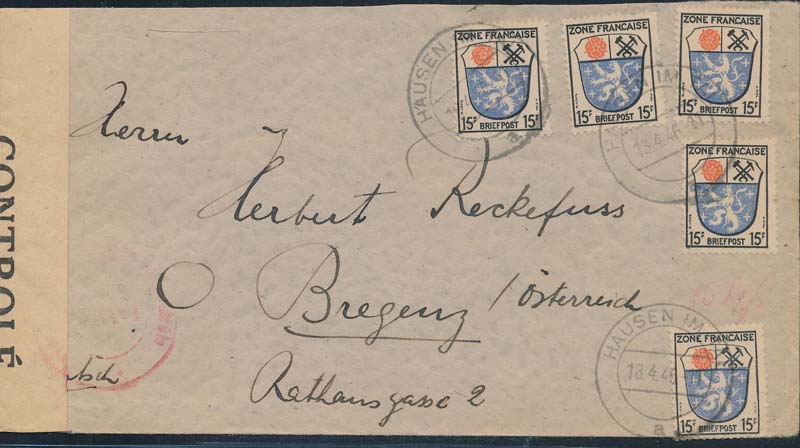 CONTROLÉ
ZONE FRANCAISE
15F BRIEFPOST 15F
ZONE FRANCAISE
15F BRIEFPOST 15F
ZONE FRANCAISE
15F BRIEFPOST 15F
ZONE FRANCAISE
15F BRIEFPOST 15F
ZONE FRANCAISE
15F BRIEFPOST 15F
HAUSEN
a
HAUSEN IM
18.4.46
a
Herrn
Herbert Reckefuss
Bregenz / Österreich
Rathausgasse 2